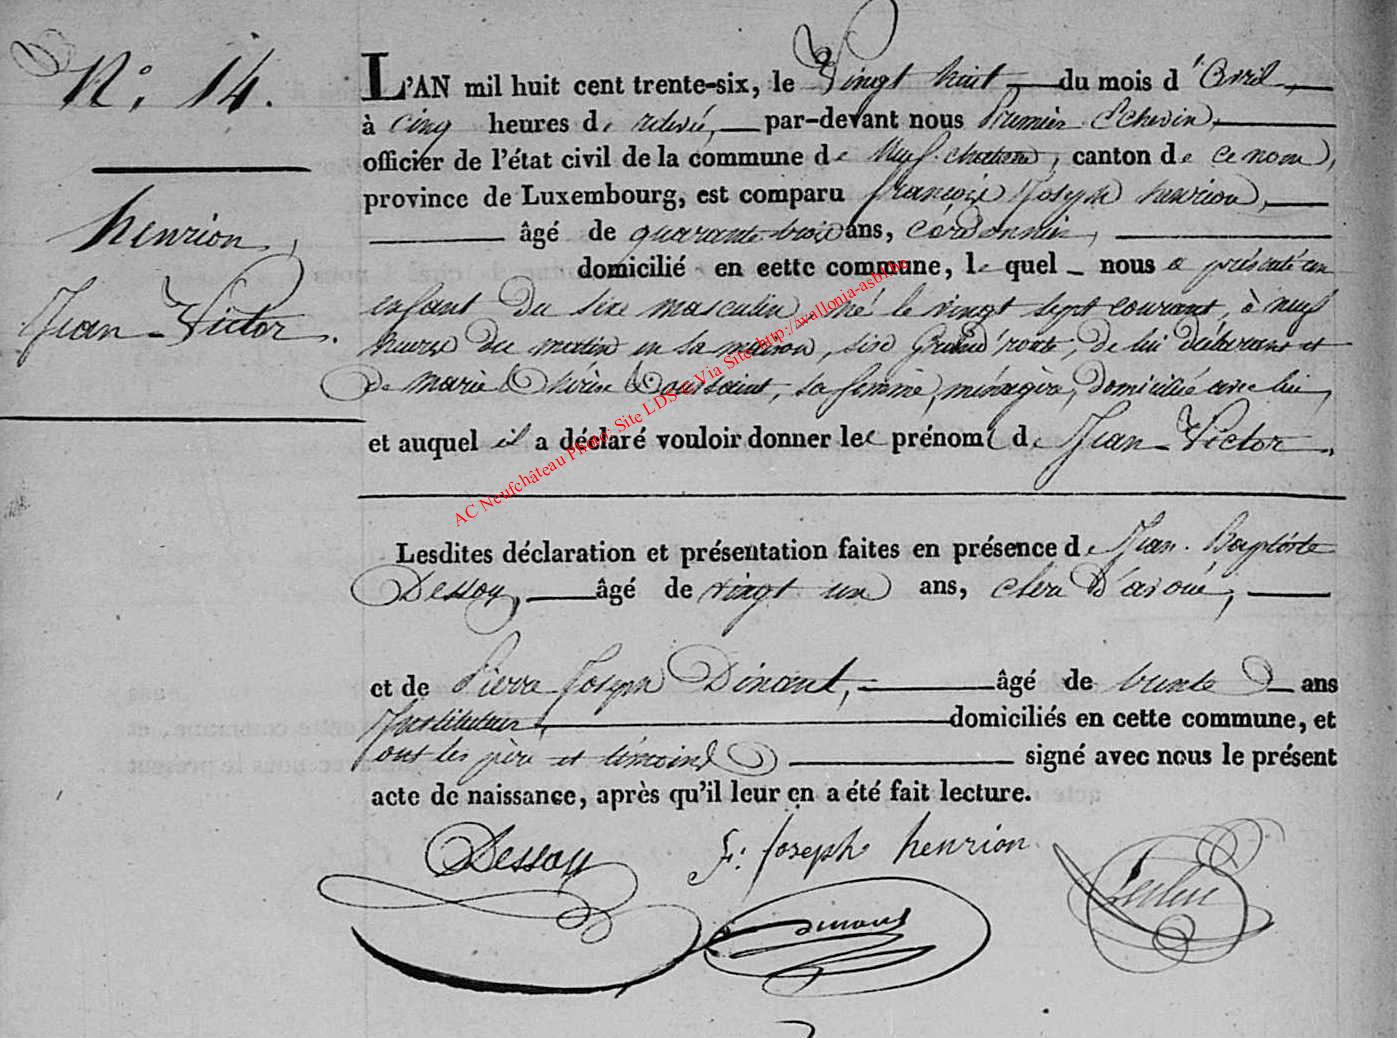 N.° 14.
henrion,
Jean-Victor.
L'AN mil huit cent trente-six, le Vingt huit du mois d'Avril,
à cinq heures de relevée, par-devant nous Premier Echevin,
officier de l'état civil de la commune de Neufchateau, canton de ce nom,
province de Luxembourg, est comparu françois Joseph henrion,
âgé de quarante-trois ans, cordonnier,
domicilié en cette commune, lequel nous a présenté un
enfant du sexe masculin, né le vingt sept courant, à neuf
heures du matin en sa maison, sise Grand'route, de lui déclarant et
de Marie Thérèse Toussaint, sa femme, ménagère, domiciliée avec lui,
et auquel il a déclaré vouloir donner les prénoms de Jean-Victor.
Lesdites déclaration et présentation faites en présence de Jean-Baptiste
Dessoy, âgé de vingt un ans, clerc d'avoué,
et de Pierre Joseph Dinant, âgé de trente ans
Instituteur, domiciliés en cette commune, et
ont les père et témoins signé avec nous le présent
acte de naissance, après qu'il leur en a été fait lecture.
Dessoy F: Joseph henrion
Dinant
AC Neufchâteau Photo: Site LDS - Via Site http://wallonia-asbl.be